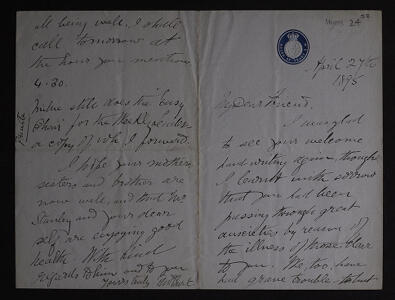 April 27th
1895
My Dear Friend.
I was glad
to see your welcome
hand writing again, though
I learnt with sorrow
that you had been
passing through great
anxieties by reason of
the illness of those dear
to you. We, too, have
had grave trouble
all being well, I shall
call tomorrow at
the hour you mention
4.30.
still does the "Easy
Chair" for the
a copy of wh. I forward.
Private
I hope your mother,
sisters and brother are
now well, and that Mr
Stanley and your dear
self are enjoying good
health. With kind
regards to him and to you
Yours truly